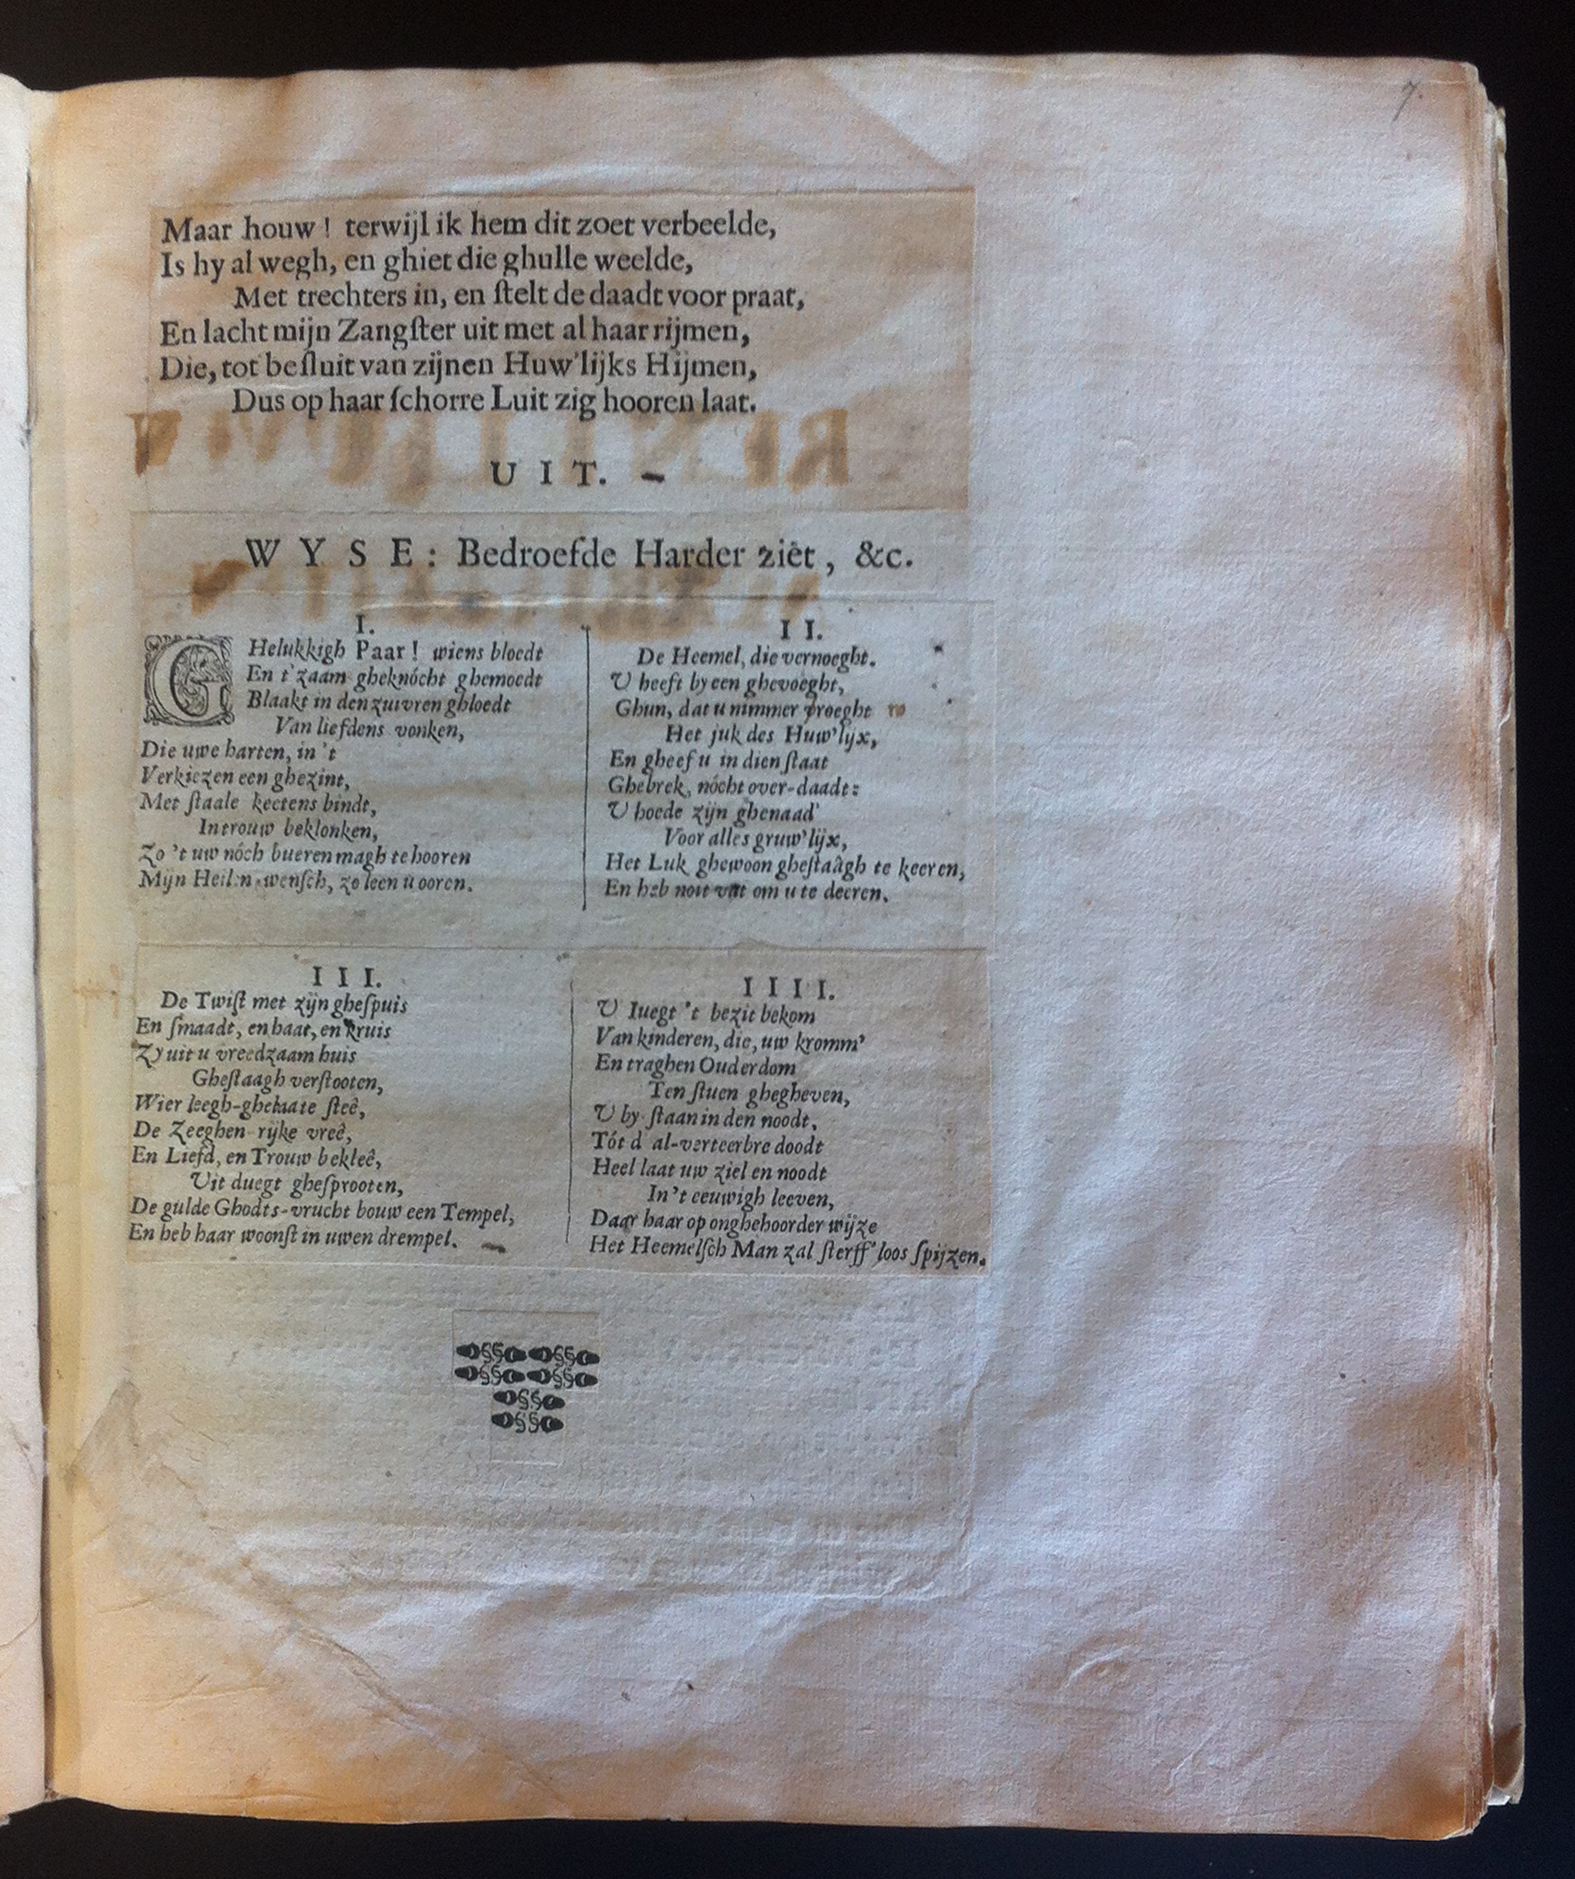 7.
Maar houw! terwijl ik hem dit zoet verbeelde,
Is hy al wegh, en ghiet die ghulle weelde,
Met trechters in, en ſtelt de daadt voor praat,
En lacht mijn Zangſter uit met al haar rijmen,
Die, tot beſluit van zijnen Huw'lijks Hijmen,
Dus op haar ſchorre Luit zig hooren laat.
UIT.
WYSE: Bedroefde Harder ziêt, &c.
I.
GHelukkigh Paar! wiens bloedt
En t'zaam gheknócht ghemoedt
Blaakt in den zuivren ghloedt
Van liefdens vonken,
Die uwe harten, in 't
Verkiezen een ghezint,
Met ſtaale keetens bindt,
In trouw beklonken,
Zo 't uw nóch bueren magh te hooren
Mijn Heil-en-wenſch, zo leen u ooren.
II.
De Heemel, die vernoeght.
U heeft by een ghevoeght,
Ghun, dat u nimmer vroeght
Het juk des Huw'lijx,
En gheef u in dien ſtaat
Ghebrek, nócht over-daadt:
U hoede zijn ghenaad'
Voor alles gruw'lijx,
Het Luk ghewoon gheſtaâgh te keeren,
En heb noit vat om u te deeren.
III.
De Twiſt met zijn gheſpuis
En ſmaadt, en haat, en kruis
Zy uit u vreedzaam huis
Gheſtaagh verſtooten,
Wier leegh-ghelaate ſteê,
De Zeeghen-rijke vreê,
En Liefd, en Trouw bekleê,
Uit duegt gheſprooten,
De gulde Ghodts-vrucht bouw een Tempel,
En heb haar woonſt in uwen drempel.
IIII.
U Iuegt 't bezit bekom
Van kinderen, die, uw kromm'
En traghen Ouderdom
Ten ſtuen ghegheven,
U by ſtaan in den noodt,
Tót d' al-verteerbre doodt
Heel laat uw ziel en noodt
In 't eeuwigh leeven,
Daar haar op onghehoorder wijze
Het Heemelſch Man zal ſterff'loos ſpijzen.